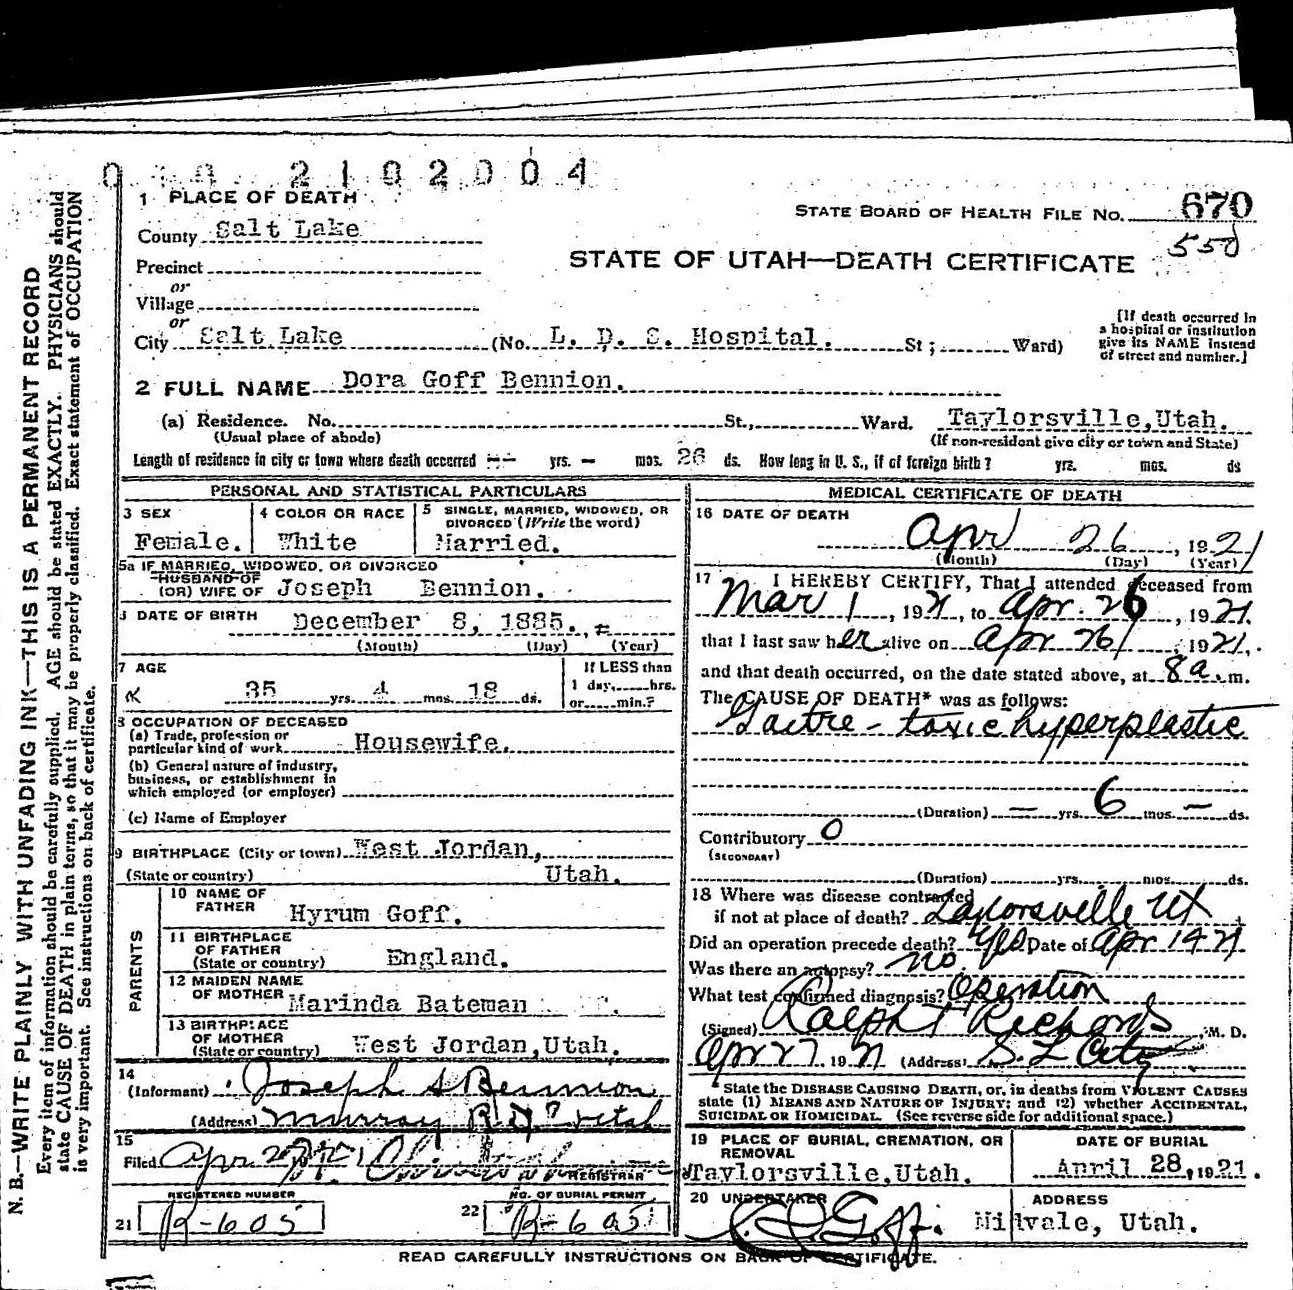 2102004
1 PLACE OF DEATH
STATE BOARD OF HEALTH FILE NO. 670
County Salt Lake
550
Precinct
STATE OF UTAH—DEATH CERTIFICATE
or
Village
or
City Salt Lake (No. L. D. S. Hospital. St ; Ward)
[If death occurred in
a hospital or institution
give its NAME instead
of street and number.]
2 FULL NAME Dora Goff Bennion.
(a) Residence. No. St., Ward. Taylorsville, Utah.
(Usual place of abode) (If non-resident give city or town and State)
Length of residence in city or town where death occurred -- yrs. — mos. 26 ds. How long in U. S., if of foreign birth? yrs. mos. ds
PERSONAL AND STATISTICAL PARTICULARS
3 SEX
Female.
4 COLOR OR RACE
White
5 SINGLE, MARRIED, WIDOWED, OR
DIVORCED (Write the word)
Married.
5a IF MARRIED, WIDOWED, OR DIVORCED
HUSBAND OF
(OR) WIFE OF Joseph Bennion.
6 DATE OF BIRTH December 8, 1885.
(Month) (Day) (Year)
7 AGE
35 yrs. 4 mos. 18 ds.
If LESS than
1 day, hrs.
or min.?
8 OCCUPATION OF DECEASED
(a) Trade, profession or
particular kind of work Housewife.
(b) General nature of industry,
business, or establishment in
which employed (or employer)
(c) Name of Employer
9 BIRTHPLACE (City or town) West Jordan,
(State or country) Utah.
PARENTS
10 NAME OF
FATHER Hyrum Goff.
11 BIRTHPLACE
OF FATHER
(State or country) England.
12 MAIDEN NAME
OF MOTHER Marinda Bateman
13 BIRTHPLACE
OF MOTHER
(State or country) West Jordan, Utah.
14
(Informant) Joseph S Bennion
(Address) Murray R # 7 Utah
15
Filed Apr 27
REGISTRAR
REGISTERED NUMBER
21 R-605
NO. OF BURIAL PERMIT
22 R-605
MEDICAL CERTIFICATE OF DEATH
16 DATE OF DEATH
Apr 26, 1921
(Month) (Day) (Year)
17 I HEREBY CERTIFY, That I attended deceased from
Mar 1, 1921, to Apr. 26, 1921.
that I last saw her alive on Apr 26, 1921,
and that death occurred, on the date stated above, at 8 a.m.
The CAUSE OF DEATH* was as follows:
Goitre - toxic hyperplastic
(Duration) — yrs. 6 mos. — ds.
Contributory 0
(SECONDARY)
(Duration) yrs. mos. ds.
18 Where was disease contracted
if not at place of death? Taylorsville Ut
Did an operation precede death? Yes Date of Apr 14 21
Was there an autopsy? no
What test confirmed diagnosis? Operation
(Signed) Ralph T Richards M. D.
Apr 27 1921 (Address) S. L City
*State the DISEASE CAUSING DEATH, or, in deaths from VIOLENT CAUSES
state (1) MEANS AND NATURE OF INJURY; and (2) whether ACCIDENTAL,
SUICIDAL OR HOMICIDAL. (See reverse side for additional space.)
19 PLACE OF BURIAL, CREMATION, OR
REMOVAL
Taylorsville, Utah.
DATE OF BURIAL
April 28, 1921.
20 UNDERTAKER
Goff.
ADDRESS
Midvale, Utah.
READ CAREFULLY INSTRUCTIONS ON BACK OF CERTIFICATE.
N. B.—WRITE PLAINLY WITH UNFADING INK—THIS IS A PERMANENT RECORD
Every item of information should be carefully supplied. AGE should be stated EXACTLY. PHYSICIANS should
state CAUSE OF DEATH in plain terms, so that it may be properly classified. Exact statement of OCCUPATION
is very important. See instructions on back of certificate.